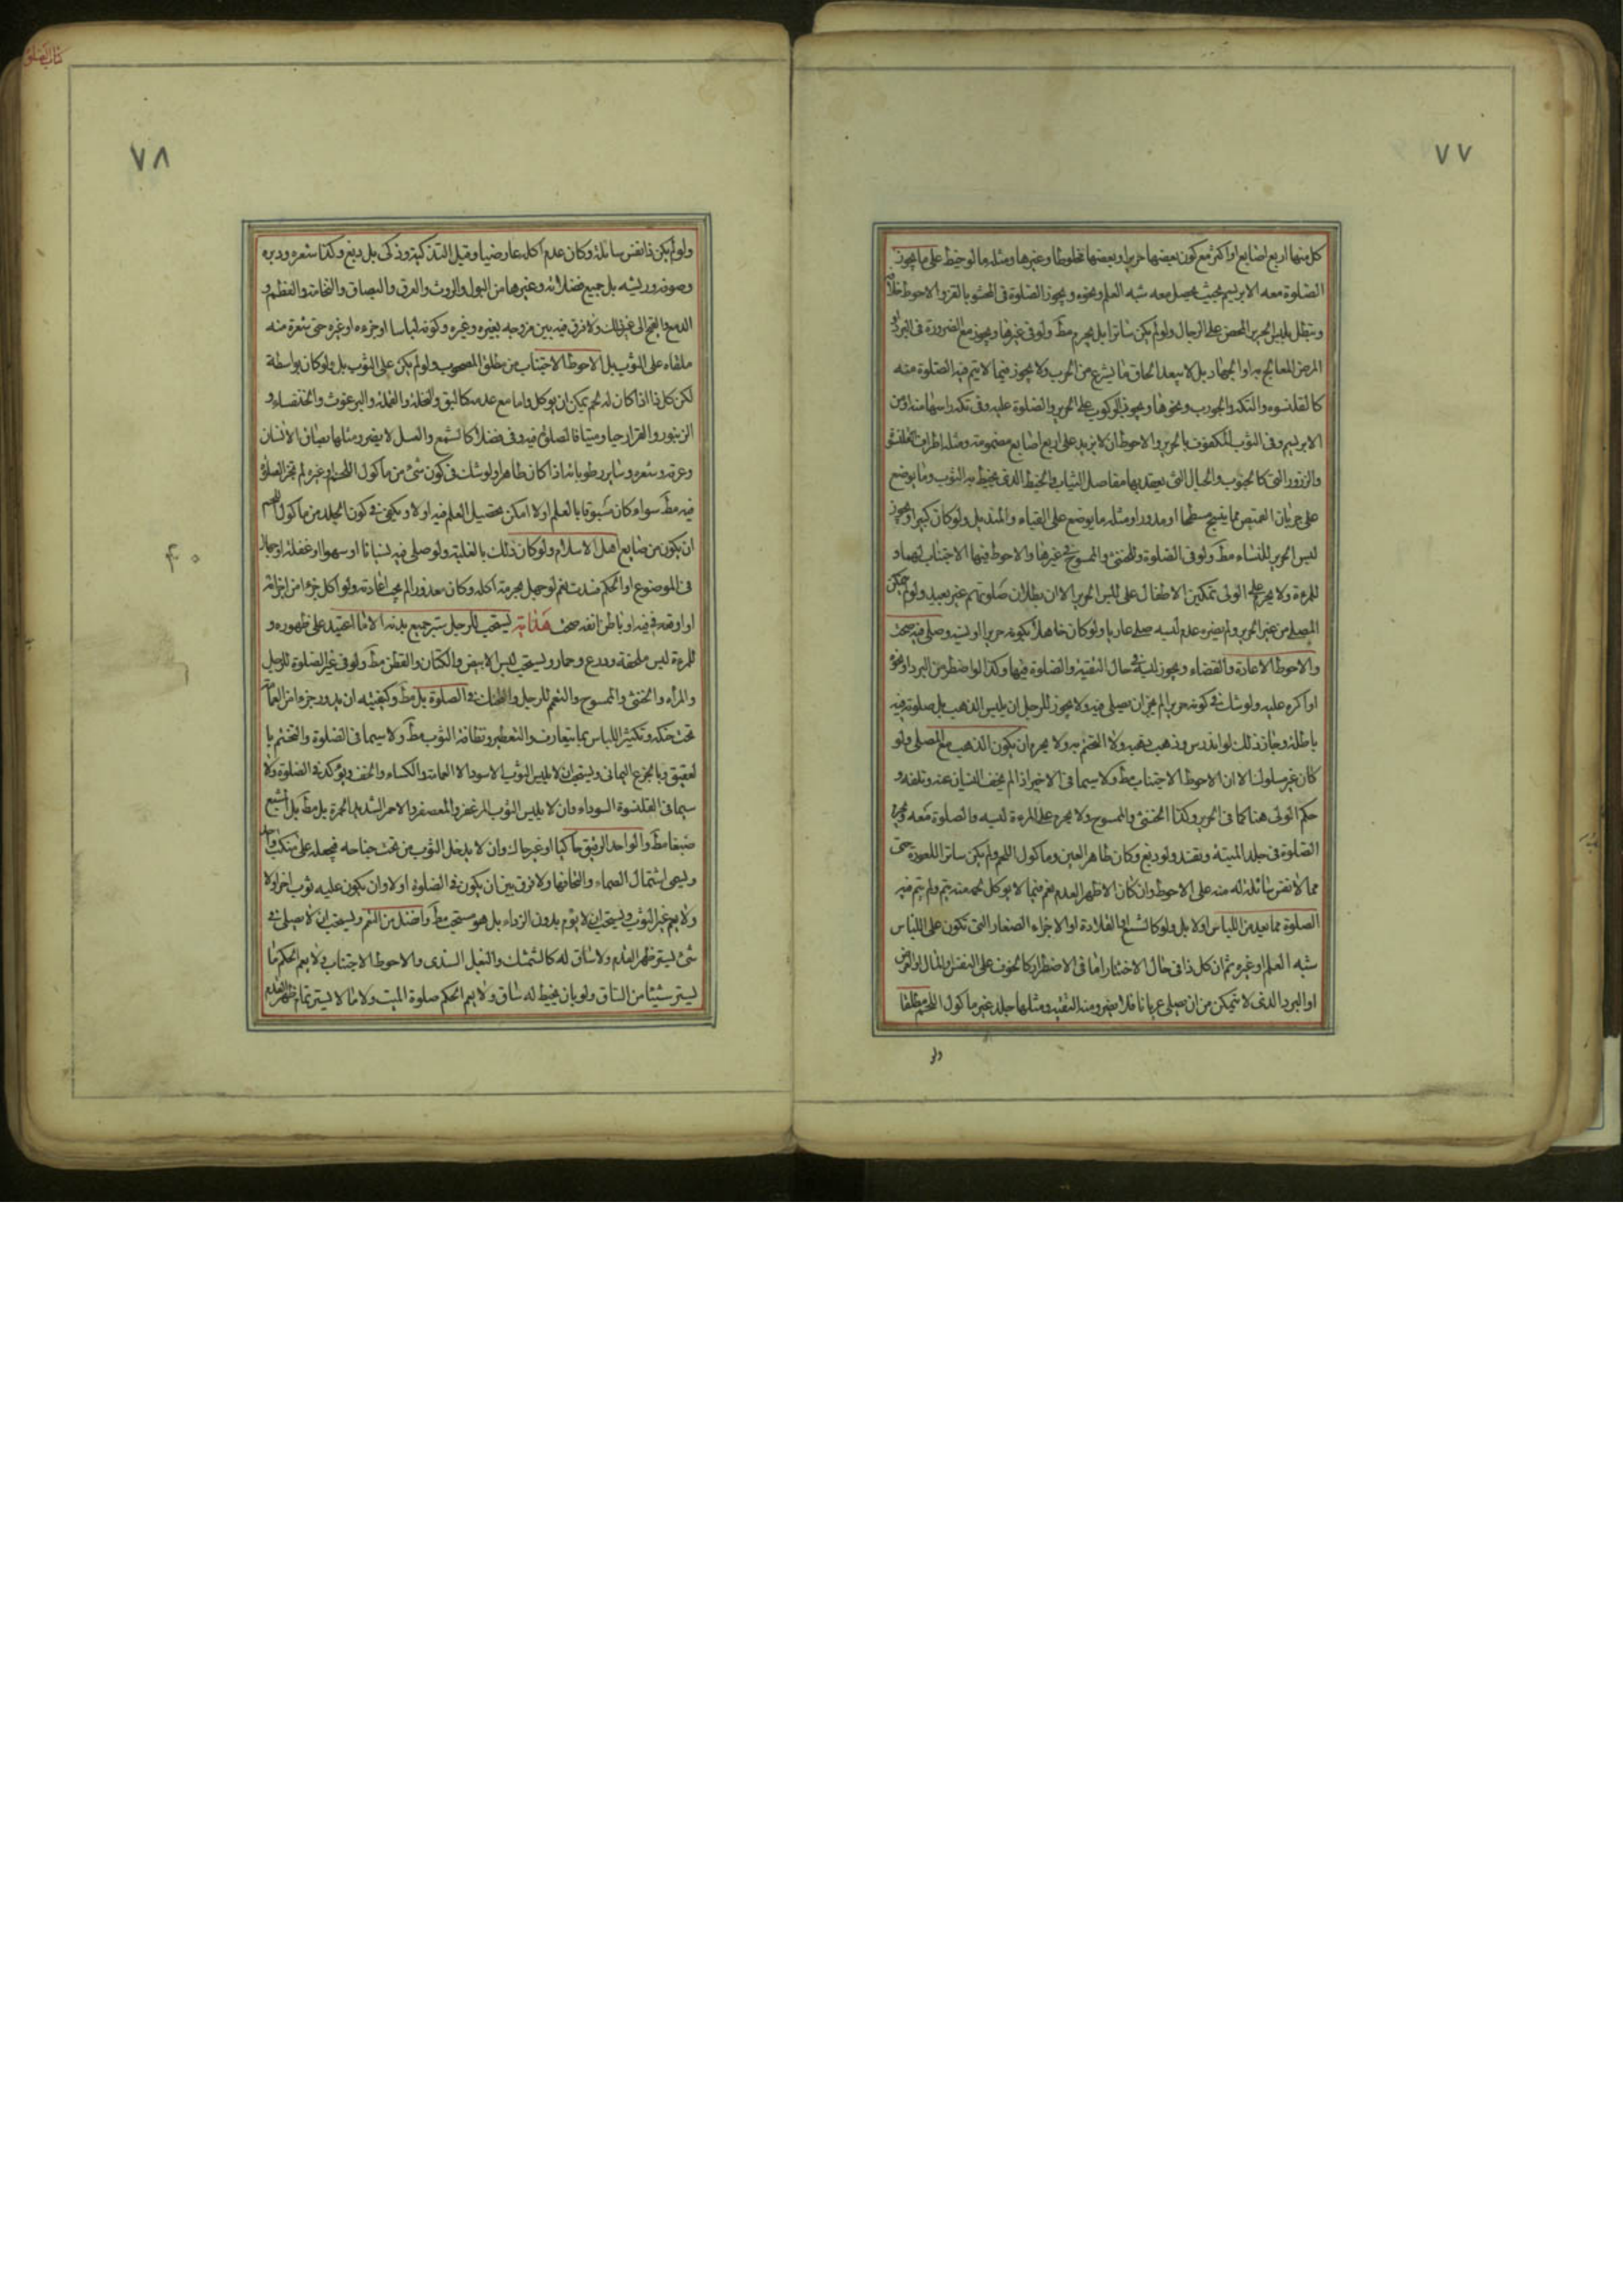 ٧٧
كل منها اربع اصابع او اكثر مع كون بعضها حريرا وبعضها مخلوطا وغيرها ومثله ما لو خيط على ما يجوز
الصلوة معه الابريسم بحيث يحصل معه شبه العلم ونحوه ويجوز الصلوة فى المحشو بالقز والاحوط خلافه
وتبطل بلبس الحرير المحض على الرجال ولو لم يكن ساترا بل يحرم مط ولو فى غيرها ويجوز مع الضرورة فى البرد او
المرض المعالج به او الجهاد بل لا يبعد الحاق ما يشرع من الحرب ولا يجوز فيما لا يتم فيه الصلوة منه
كالقلنسوه والتكه والجورب ونحوها ويجوز الركوب على الحرير والصلوة عليه وفى تكه راسها منه او من
الابريسم وفى الثوب المكفوف بالحرير والاحوط ان لا يزيد على اربع اصابع مضمومة ومثله اطراف
والزرور التى كالحبوب والحبال التى يعقد بها مفاصل الثياب والخيط الذى يخيط به الثوب وما يوضع
على جربان القميص مما ينسج مسطحا او مدورا ومثله ما يوضع على القباء والمنديل ولو كان كبيرا ويجوز
لبس الحرير للنساء مط ولو فى الصلوة وللخنثى والممسوح فى غيرها والاحوط فيها الاجتناب لهما و
للمرءة ولا يحرم على الولى تمكين الاطفال على لبس الحرير الا ان بطلان صلوتهم غير بعيد ولو لم يتمكن
المصلى من غير الحرير ولم يضره عدم لبسه صلى عاريا ولو كان جاهلا بكونه حريرا او نسيه وصلى فيه صحت
والاحوط الاعادة والقضاء ويجوز لبسه فى حال التقية والصلوة فيها وكذا لو اضطر من البرد او نحوه
او اكره عليه ولو شك فى كونه حريرا لم يجز ان يصلى فيه ولا يجوز للرجل ان يلبس الذهب بل صلوته فيه
باطلة وجاز ذلك لو اندرس وذهب ذهبه ولا التختم به ولا يحرم ان يكون الذهب مع المصلى ولو
كان غير مسلوك الا ان الاحوط الاجتناب مط ولا سيما فى الاخير اذا لم يخف النسيان عنه وتلفه و
حكم الولى هنا كما فى الحرير وكذا الخنثى والممسوح ولا يحرم على المرءة لبسه والصلوة معه ويحرم
الصلوة فى جلد الميتة وتفسد ولو دبغ وكان طاهر العين وماكول اللحم ولم يكن ساترا للعورة حتى
مما لا نفس سائلة له منه على الاحوط وان كان الاظهر العدم نعم فيما لا يوكل لحمه منه يتم ولم يتم فيه
الصلوة مما يعد من اللباس اولا بل ولو كالشسع والقلادة او الاجزاء الصغار التى تكون على اللباس
شبه العلم او غيره ثم ان كل ذا فى حال الاختيار اما فى الاضطرار كالخوف على النفس والمال
او البرد الذى لا يتمكن من ان يصلى عريانا فلا يضر ومنه التقيه ومثلها جلد غير ماكول اللحم مطلقا
ولو
كتاب الصلوة
٧٨
ولو لم يكن ذا نفس سائلة وكان عدم اكله عارضيا وقبل التذكية وذكى بل دبغ وكذا شعره ووبره
وصوفه وريشه بل جميع فضلاته وغيرها من البول والروث والعرق والبصاق والنخامة والعظم و
الدمع والقيح الى غير ذلك ولا فرق فيه بين مزوجه بغيره وغيره وكونه لباسا او جزءه او غيره حتى شعرة منه
ملقاه على الثوب بل الاحوط الاجتناب من مطلق المصحوب ولو لم يكن على الثوب بل ولو كان بواسطة
لكن كل ذا اذا كان له لحم يمكن ان يوكل واما مع عدمه كالبق والنحلة والنملة والبرغوث والخنفساء و
الزنبور والقراد حيا وميتا فالصلوة فيه وفى فضلاته كالشمع والعسل لا يضر ومثلها بصاق الانسان
وعرقه وشعره وساير رطوباته اذا كان طاهرا ولو شك فى كون شئ من ماكول اللحم او غيره لم تجز الصلوة
فيه مط سواء كان مسبوقا بالعلم اولا امكن تحصيل العلم فيه اولا ويكفى فى كون الجلد من ماكول اللحم
ان يكون من صنايع اهل الاسلام ولو كان ذلك بالغلبة ولو صلى فيه نسيانا او سهوا او غفلة او جهلا
فى الموضوع او الحكم فسدت نعم لو جهل بحرمة اكله وكان معذورا لم يجب اعادته ولو اكل جزءا من اجزائه
او اوقعه فى فيه او باطن انفه صحت هداية يستحب للرجل ستر جميع بدنه الا ما اعتيد على ظهوره و
للمرءة لبس ملحفة ودرع وخمار ويستحب لبس الابيض والكتان والقطن مط ولو فى غير الصلوة للرجل
والمراه والخنثى والممسوح والتعمم للرجل والحنك فى الصلوة بل مط وكيفيته ان يدور جزءا من العمامة
تحت حنكه وتكثير اللباس بما يتعارف والتعطر ونظافة الثوب مط ولا سيما فى الصلوة والتختم با
لعقيق وبالجزع اليمانى ويستحب ان لا يلبس الثوب الاسود الا العمامة والكساء والخف ويؤكد فى الصلوة ولا
سيما فى القلنسوة السوداء وان لا يلبس الثوب المزعفر والمعصفر والاحمر الشديد الحمرة بل مط بل اشبع
صبغا مط والواحد الرقيق حاكيا او غير حاك وان لا يدخل الثوب من تحت جناحه فيجعله على منكب واحد
ويسمى اشتمال الصماء والتحافها ولا فرق بين ان يكون فى الصلوة اولا وان يكون عليه ثوب اخر اولا
ولا يعم غير الثوب ويستحب ان لا يؤم بدون الرداء بل هو مستحب مط وافضل من التعمم ويستحب ان لا يصلى فى
شئ يستر ظهر القدم ولا ساق له كالشمشك والنعل السندى والاحوط الاجتناب ولا يعم الحكم ما
يستر شيئا من الساق ولو بان يخيط له ساق ولا يعم الحكم صلوة الميت ولا ما لا يستر تمام ظهر القدم